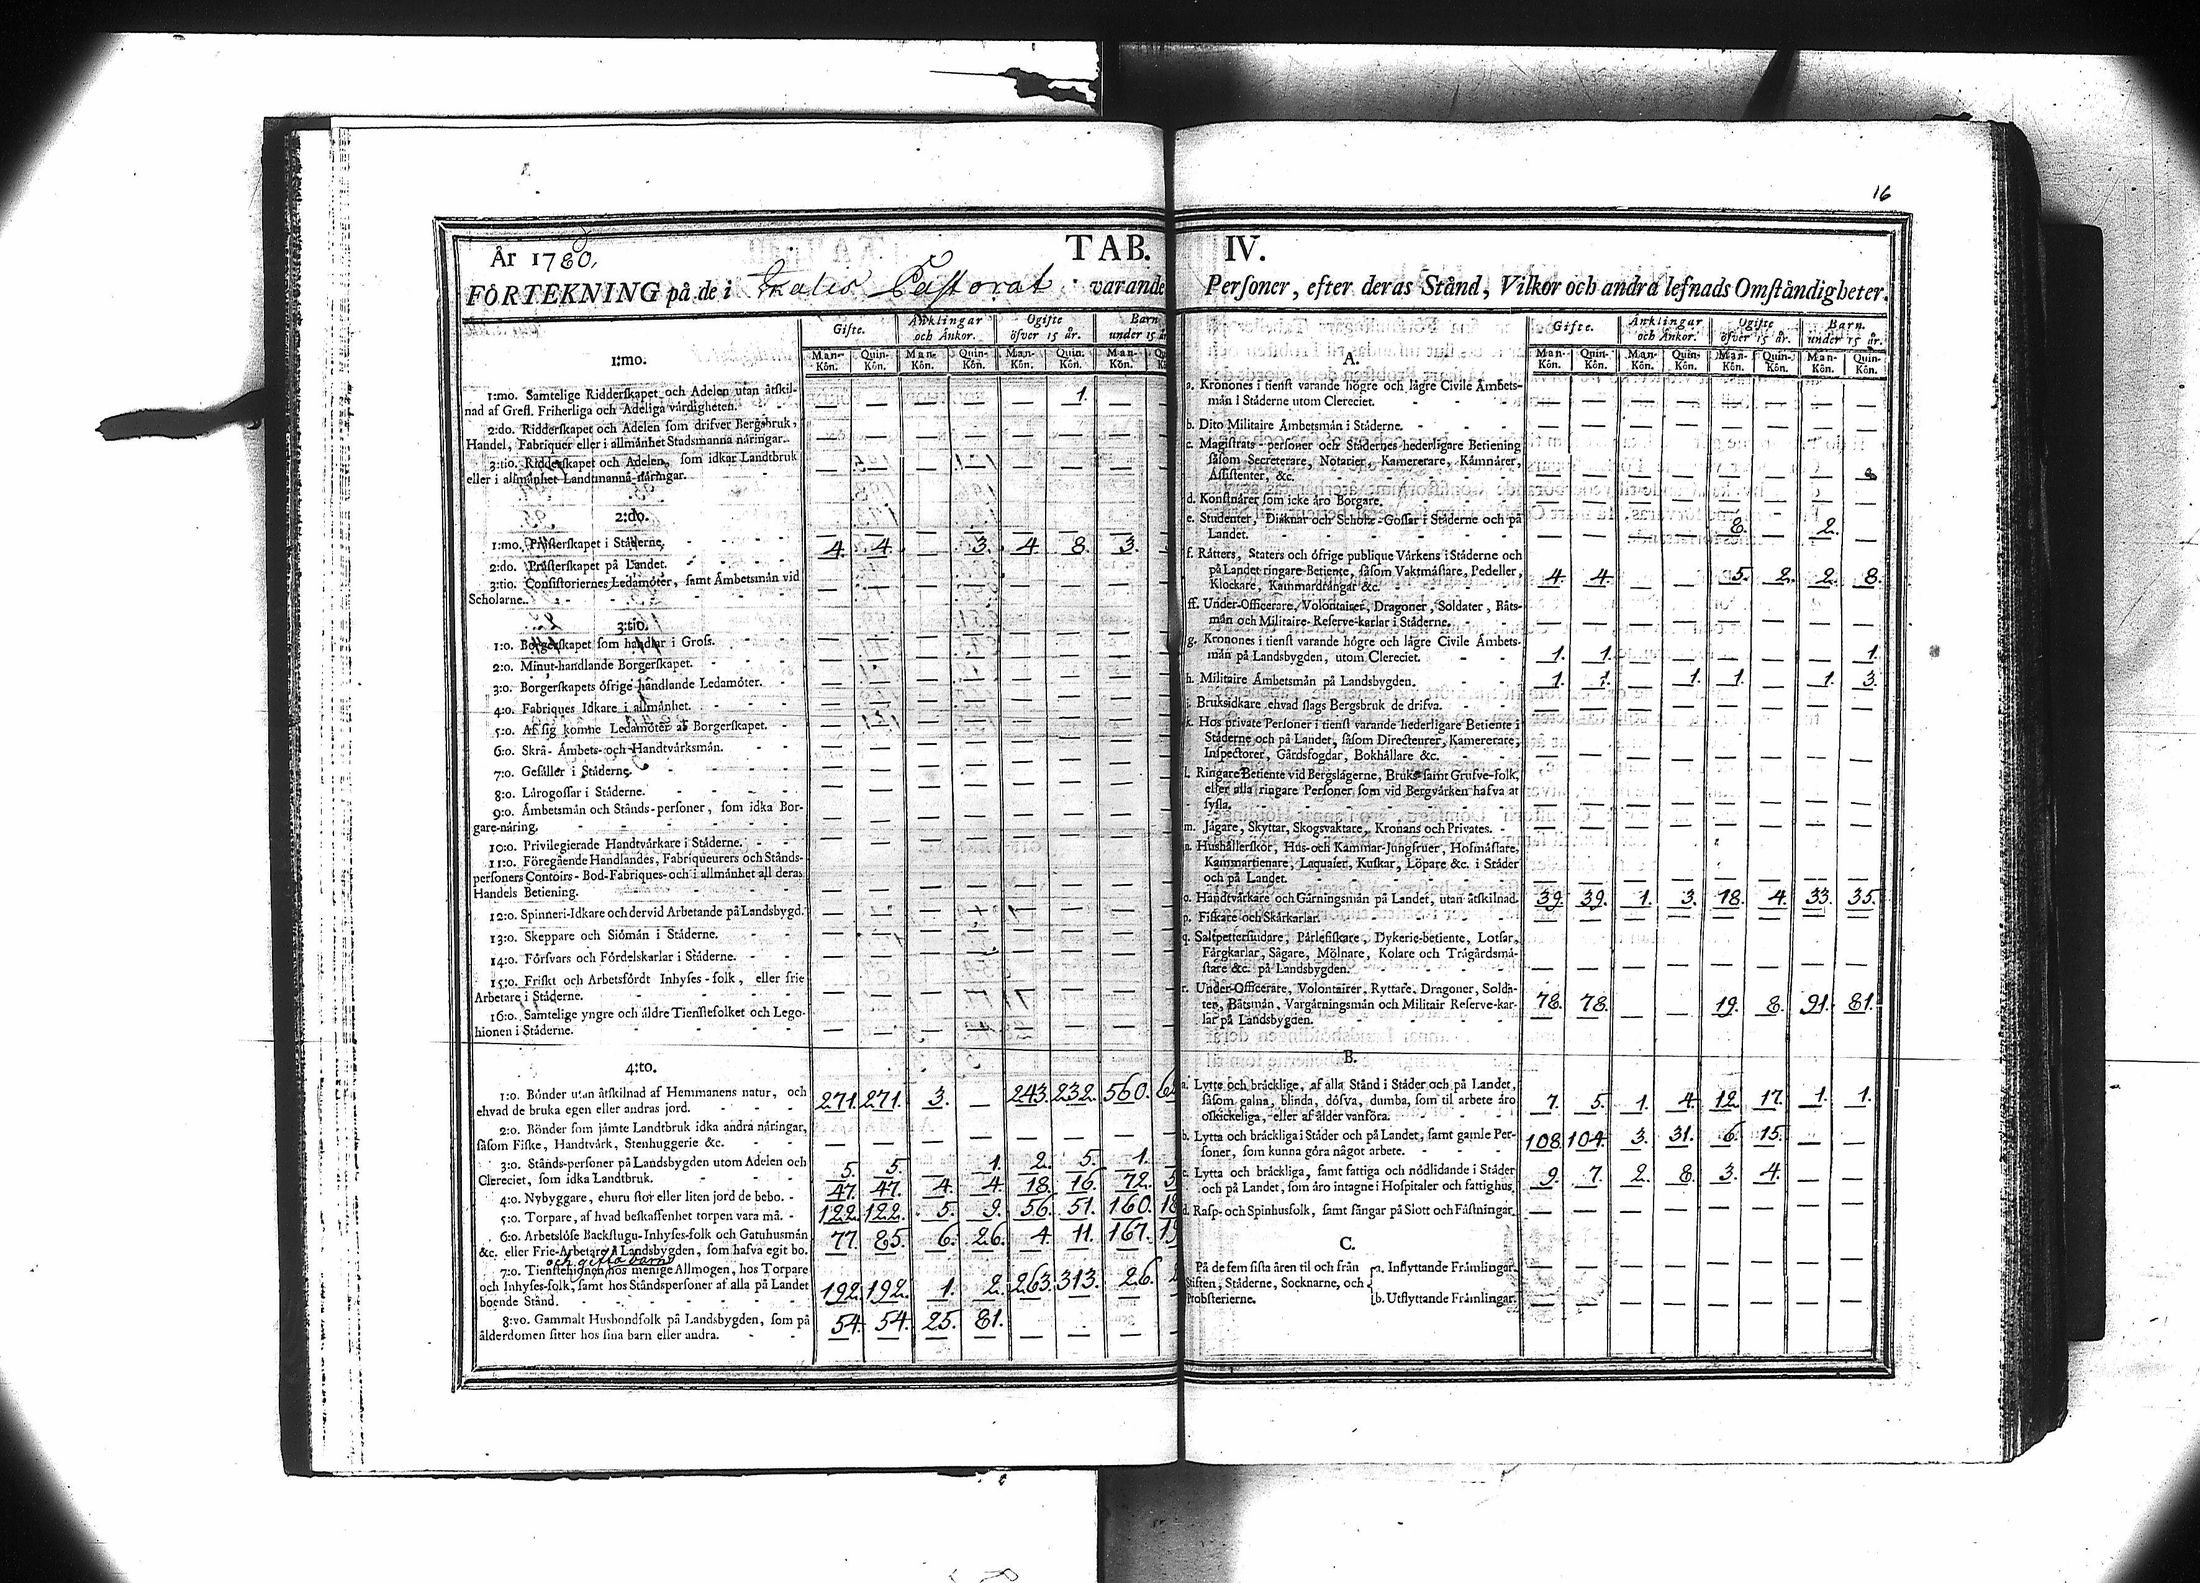 16
År 1780. TAB. IV.
FÖRTEKNING på de i Pastorat varande Personer, efter deras Stånd, Vilkor och andra lefnads Omständigheter.
Gifte. Änklingar och Änkor. Ogifte öfver 15 år. Barn under 15 år
Man-Kön. Quin-Kön. Man-Kön. Quin-Kön. Man-Kön. Quin-Kön. Man-Kön.
1:mo.
1:mo. Samtelige Ridderskapet och Adelen utan åtskil-
nad af Grefl. Friherliga och Adeliga värdigheten. — — — — — 1. —
2:do. Ridderskapet och Adelen som drifver Bergsbruk,
Handel, Fabriquer eller i allmänhet Stadsmanna näringar. — — — — — — —
3:tio. Ridderskapet och Adelen, som idkar Landtbruk
eller i allmänhet Landtmanna-näringar. — — — — — — —
2:do.
1:mo. Prästerskapet i Städerne,
4. 4. — 3. 4. 8. 3.
2:do. Prästerskapet på Landet.
3:tio. Consistoriernes Ledamöter, samt Ämbetsmän vid
Scholarne. — — — — — — —
3:tio.
1:o. Borgerskapet som handlar i Gross. — — — — — — —
2:o. Minut-handlande Borgerskapet. — — — — — — —
3:o. Borgerskapets öfrige handlande Ledamöter. — — — — — — —
4:o. Fabriques Idkare i allmänhet. — — — — — — —
5:o. Af sig komne Ledamöter af Borgerskapet. — — — — — — —
6:o. Skrå- Ämbets- och Handtvärksmän. — — — — — — —
7:o. Gesäller i Städerne. — — — — — — —
8:o. Lärogossar i Städerne. — — — — — — —
9:o. Ämbetsmän och Stånds-personer, som idka Bor-
gare-näring. — — — — — — —
10:o. Privilegierade Handtvärkare i Städerne. — — — — — — —
11:o. Föregående Handlandes, Fabriqueurers och Stånds-
personers Contoirs- Bod-Fabriques- och i allmänhet all deras
Handels Betiening. — — — — — — —
12:o. Spinneri-Idkare och dervid Arbetande på Landsbygd. — — — — — — —
13:o. Skeppare och Siömän i Städerne. — — — — — — —
14:o. Försvars och Fördelskarlar i Städerne. — — — — — — —
15:o. Friskt och Arbetsfördt Inhyses-folk, eller frie
Arbetare i Städerne. — — — — — — —
16:o. Samtelige yngre och äldre Tienstefolket och Lego-
hionen i Städerne. — — — — — — —
4:to.
1:o. Bönder utan åtskilnad af Hemmanens natur, och
ehvad de bruka egen eller andras jord. 271. 271. 3. — 243. 232. 560.
2:o. Bönder som jämte Landtbruk idka andra näringar,
såsom Fiske, Handtvärk, Stenhuggerie &c. — — — — — — —
3:o. Stånds-personer på Landsbygden utom Adelen och
Clereciet, som idka Landtbruk. 5. 5. 1. 2. 5. 1.
4:o. Nybyggare, ehuru stor eller liten jord de bebo. 47. 47. 4. 4. 18. 16. 72.
5:o. Torpare, af hvad beskaffenhet torpen vara må. 122. 122. 5. 9. 56. 51. 160.
6:o. Arbetslöse Backstugu-Inhyses-folk och Gatuhusmän
&c. eller Frie-Arbetare på Landsbygden, som hafva egit bo. 77. 85. 6. 26. 4. 11. 167.
och gifta barn
7:o. Tienstehionen hos menige Allmogen, hos Torpare
och Inhyses-folk, samt hos Ståndspersoner af alla på Landet
boende Stånd. 192. 192. 1. 2. 263. 313. 26.
8:vo. Gammalt Husbondfolk på Landsbygden, som på
ålderdomen sitter hos sina barn eller andra. 54. 54. 25. 81. — — —
Gifte. Änklingar och Änkor. Ogifte öfver 15 år. Barn. under 15 år.
Man-Kön. Quin-Kön. Man-Kön. Quin-Kön. Man-Kön. Quin-Kön. Man-Kön. Quin-Kön.
A.
a. Kronones i tienst varande högre och lägre Civile Ämbets-
män i Städerne utom Clereciet. — — — — — — — —
b. Dito Militaire Ämbetsmän i Städerne. — — — — — — — —
c. Magistrats-personer och Städernes hederligare Betiening
såsom Secreterare, Notarier, Kamererare, Kämnärer,
Assistenter, &c. — — — — — — —
d. Konstnärer som icke äro Borgare.
e. Studenter, Diäknar och Schole-Gossar i Städerne och på
Landet. — — — — 8. — 2. —
f. Rätters, Staters och öfrige publique Värkens i Städerne och
på Landet ringare Betiente, såsom Vaktmästare, Pedeller,
Klockare, Kammardrängar &c. 4. 4. — — 5. 2. 2. 8.
ff. Under-Officerare, Volontairer, Dragoner, Soldater, Båts-
män och Militaire-Reserve-karlar i Städerne. — — — — — — — —
g. Kronones i tienst varande högre och lägre Civile Ämbets-
män på Landsbygden, utom Clereciet. 1. 1. — — — — — 1.
h. Militaire Ämbetsmän på Landsbygden. 1. 1. — 1. 1. — 1. 3.
i. Bruksidkare ehvad slags Bergsbruk de drifva. — — — — — — — —
k. Hos private Personer i tienst varande hederligare Betiente i
Städerne och på Landet, såsom Directeurer, Kamererare,
Inspectorer, Gårdsfogdar, Bokhållare &c. — — — — — — — —
l. Ringare Betiente vid Bergslagerne, Bruks samt Grufve-folk,
eller alla ringare Personer som vid Bergvärken hafva at
syssla. — — — — — — — —
m. Jägare, Skyttar, Skogsvaktare, Kronans och Privates. — — — — — — — —
n. Hushållerskor, Hus- och Kammar-Jungfruer, Hofmästare,
Kammartienare, Laquaier, Kuskar, Löpare &c. i Städer
och på Landet. — — — — — — — —
o. Handtvärkare och Gärningsmän på Landet, utan åtskilnad. 39. 39. 1. 3. 18. 4. 33. 35.
p. Fiskare och Skärkarlar.
q. Saltpettersiudare, Pärlefiskare, Dykerie-betiente, Lotsar,
Färgkarlar, Sågare, Mölnare, Kolare och Trägårdsmä-
stare &c. på Landsbygden. — — — — — — — —
r. Under-Officerare, Volontairer, Ryttare, Dragoner, Solda-
ter, Båtsmän, Vargärningsmän och Militair Reserve-kar-
lar på Landsbygden. 78. 78. — — 19. 8. 91. 81.
B.
a. Lytte och bräcklige, af alla Stånd i Städer och på Landet,
såsom galna, blinda, döfva, dumba, som til arbete äro
oskickeliga, eller af ålder vanföra. 7. 5. 1. 4. 12. 17. 1. 1.
b. Lytta och bräckliga i Städer och på Landet, samt gamle Per-
soner, som kunna göra något arbete. 108 104. 3. 31. 6. 15. — —
c. Lytta och bräckliga, samt fattiga och nödlidande i Städer
och på Landet, som äro intagne i Hospitaler och fattighus. 9. 7. 2. 8. 3. 4. — —
d. Rasp- och Spinhusfolk, samt fångar på Slott och Fästningar. — — — — — — — —
C.
På de fem sista åren til och från
Stiften, Städerne, Socknarne, och
Probsterierne.
a. Inflyttande Främlingar. — — — — — — — —
b. Utflyttande Främlingar. — — — — — — — —